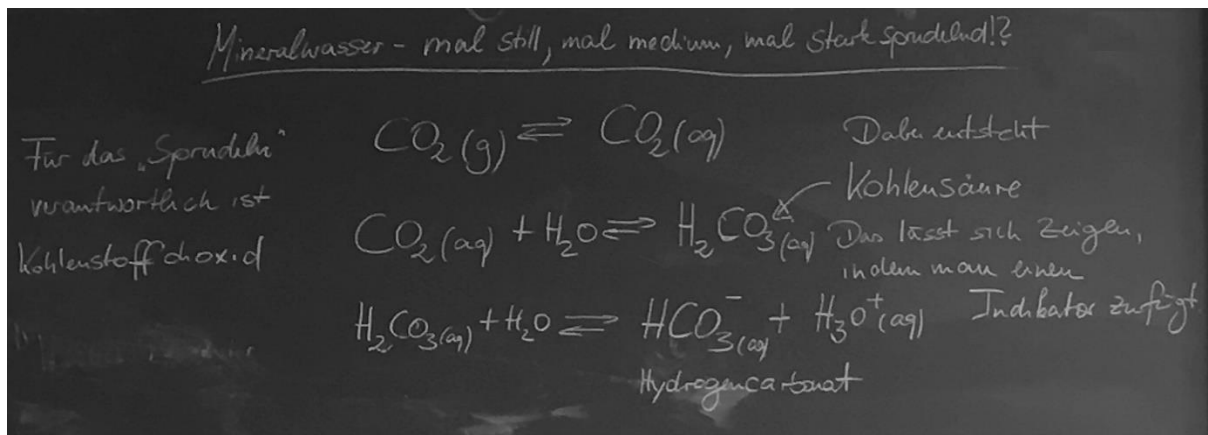 Mineralwasser - mal still, mal medium, mal stark sprudelnd!?
Für das „Sprudeln“
verantwortlich ist
Kohlenstoffdioxid
CO₂(g) ⇌ CO₂(aq)
CO₂(aq) + H₂O ⇌ H₂CO₃(aq)
H₂CO₃(aq) + H₂O ⇌ HCO₃⁻(aq) + H₃O⁺(aq)
Hydrogencarbonat
Dabei entsteht
Kohlensäure
Das lässt sich zeigen,
indem man einen
Indikator zufügt